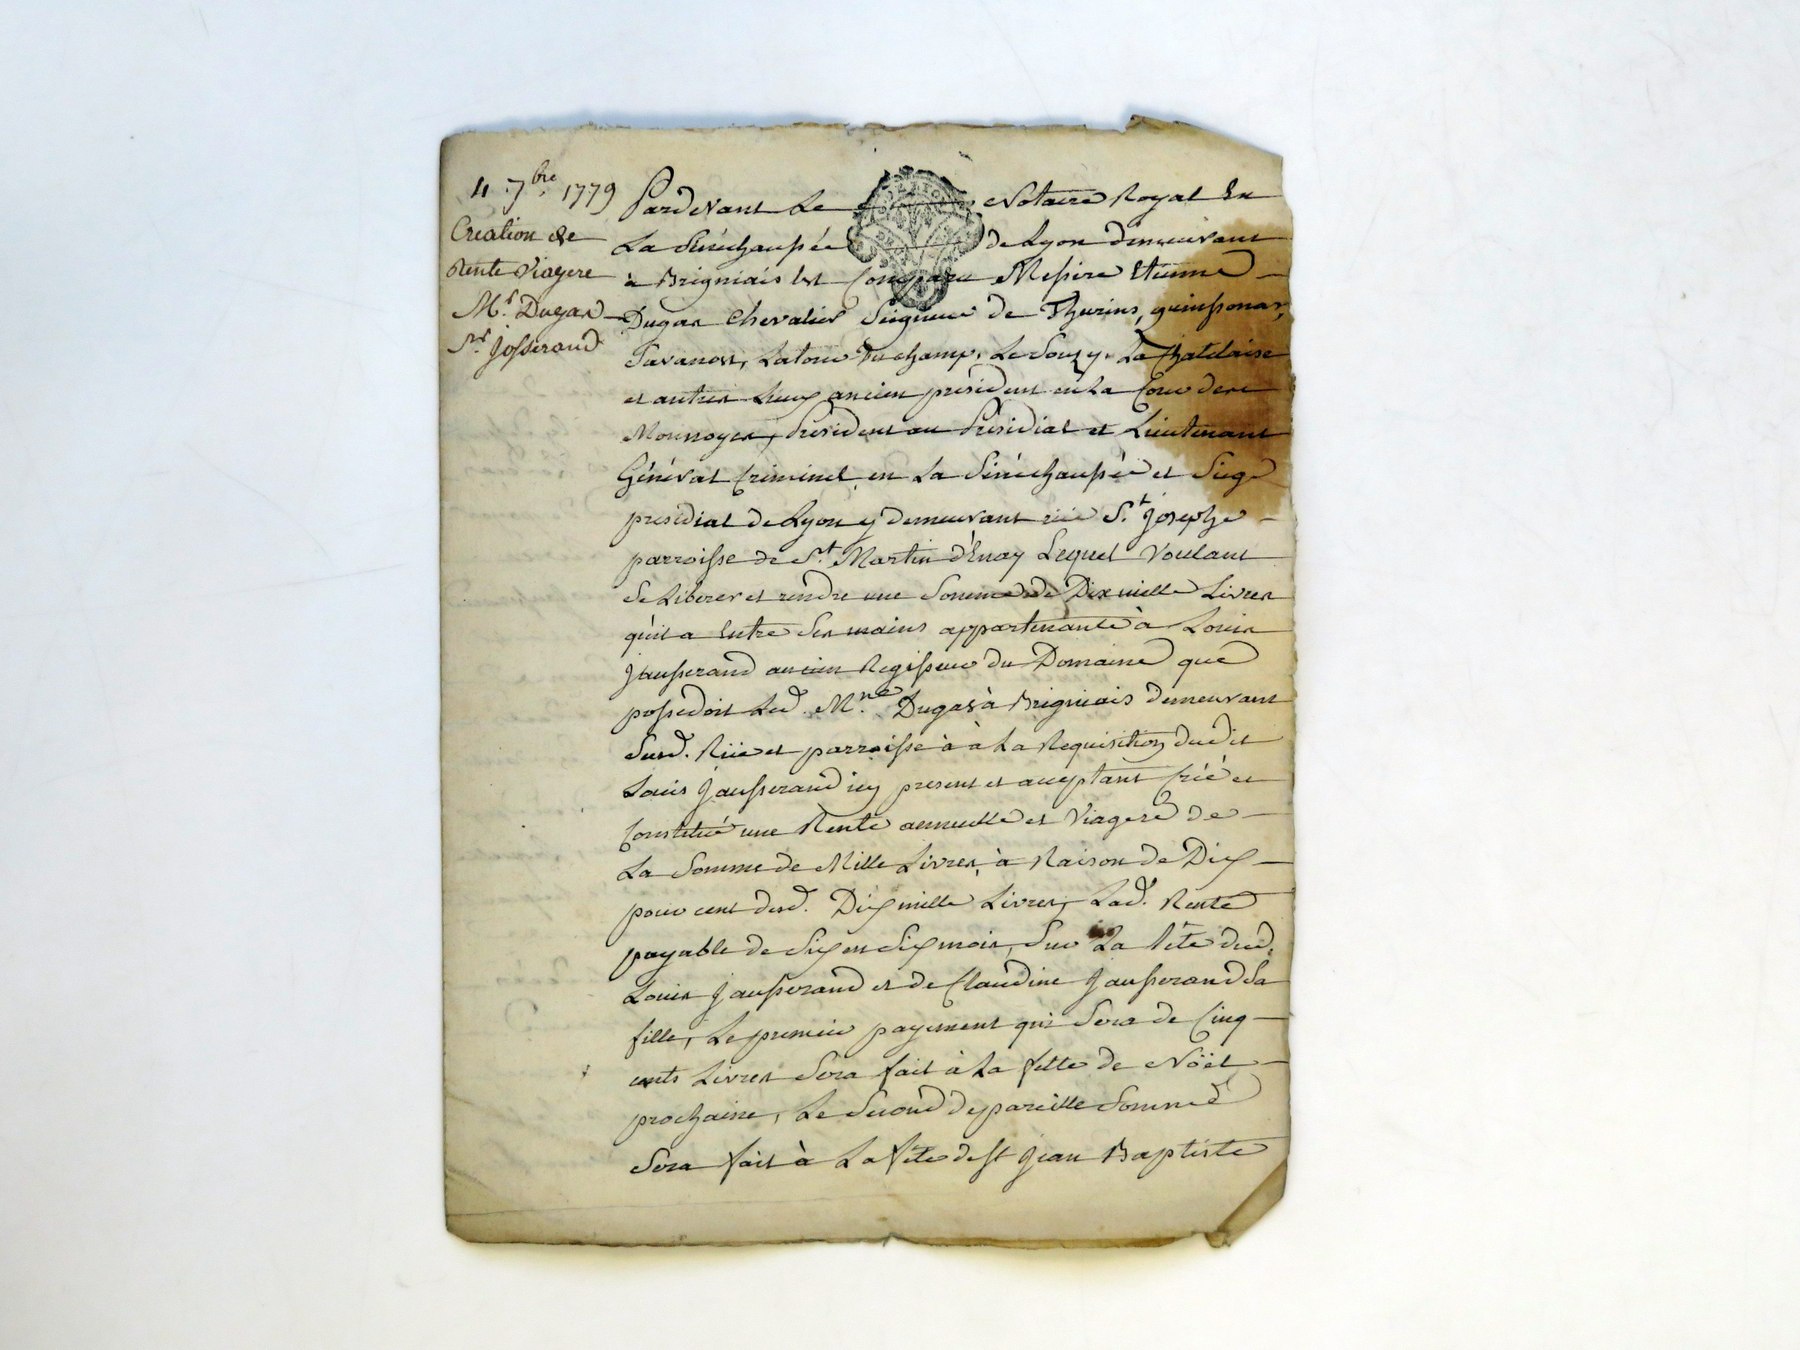 4 7bre 1779
Creation de
Rente Viagere
Mr. Dugas
Sr. Josserand
Pardevant Le Notaire Royal En
La Sénéchaussée de Lyon demeurant
à Brigniais est Comparu Messire Etienne
Dugas Chevalier Seigneur de Thurins, quinssonas,
Savanost, Latour Duchamp, Le Souzy, La Chatelaise
et autres Lieux ancien président en La Cour des
Monnoyes, Président au Présidial et Lieutenant
Général Criminel en La Sénéchaussée et Siège
presidial de Lyon y demeurant rüe St. Josephe
parroisse de St. Martin d'Enay Lequel Voulant
Se Liberer et rendre une Somme de Dix mille Livres
qu'il a Entre Ses mains appartenante à Louis
Jausserand ancien Regisseur du Domaine que
possedoit Led. Mre. Dugas à Brigniais demeurant
Susd. Rüe et parroisse à à La Requisition dudit
Louis Jausserand icy present et acceptant Créé et
Constitué une Rente annuelle et Viagere de
La Somme de Mille Livres, à Raison de Dix
pour cent desd. Dix mille Livres, Lad. Rente
payable de Six en Six mois, Sur La Tête dud.
Louis Jausserand et de Claudine Jausserand Sa
fille, Le premier payement qui Sera de Cinq
cents Livres Sera fait à La fette de Noël
prochaine, Le Second de pareille Somme
Sera fait à La fête de st Jean Baptiste